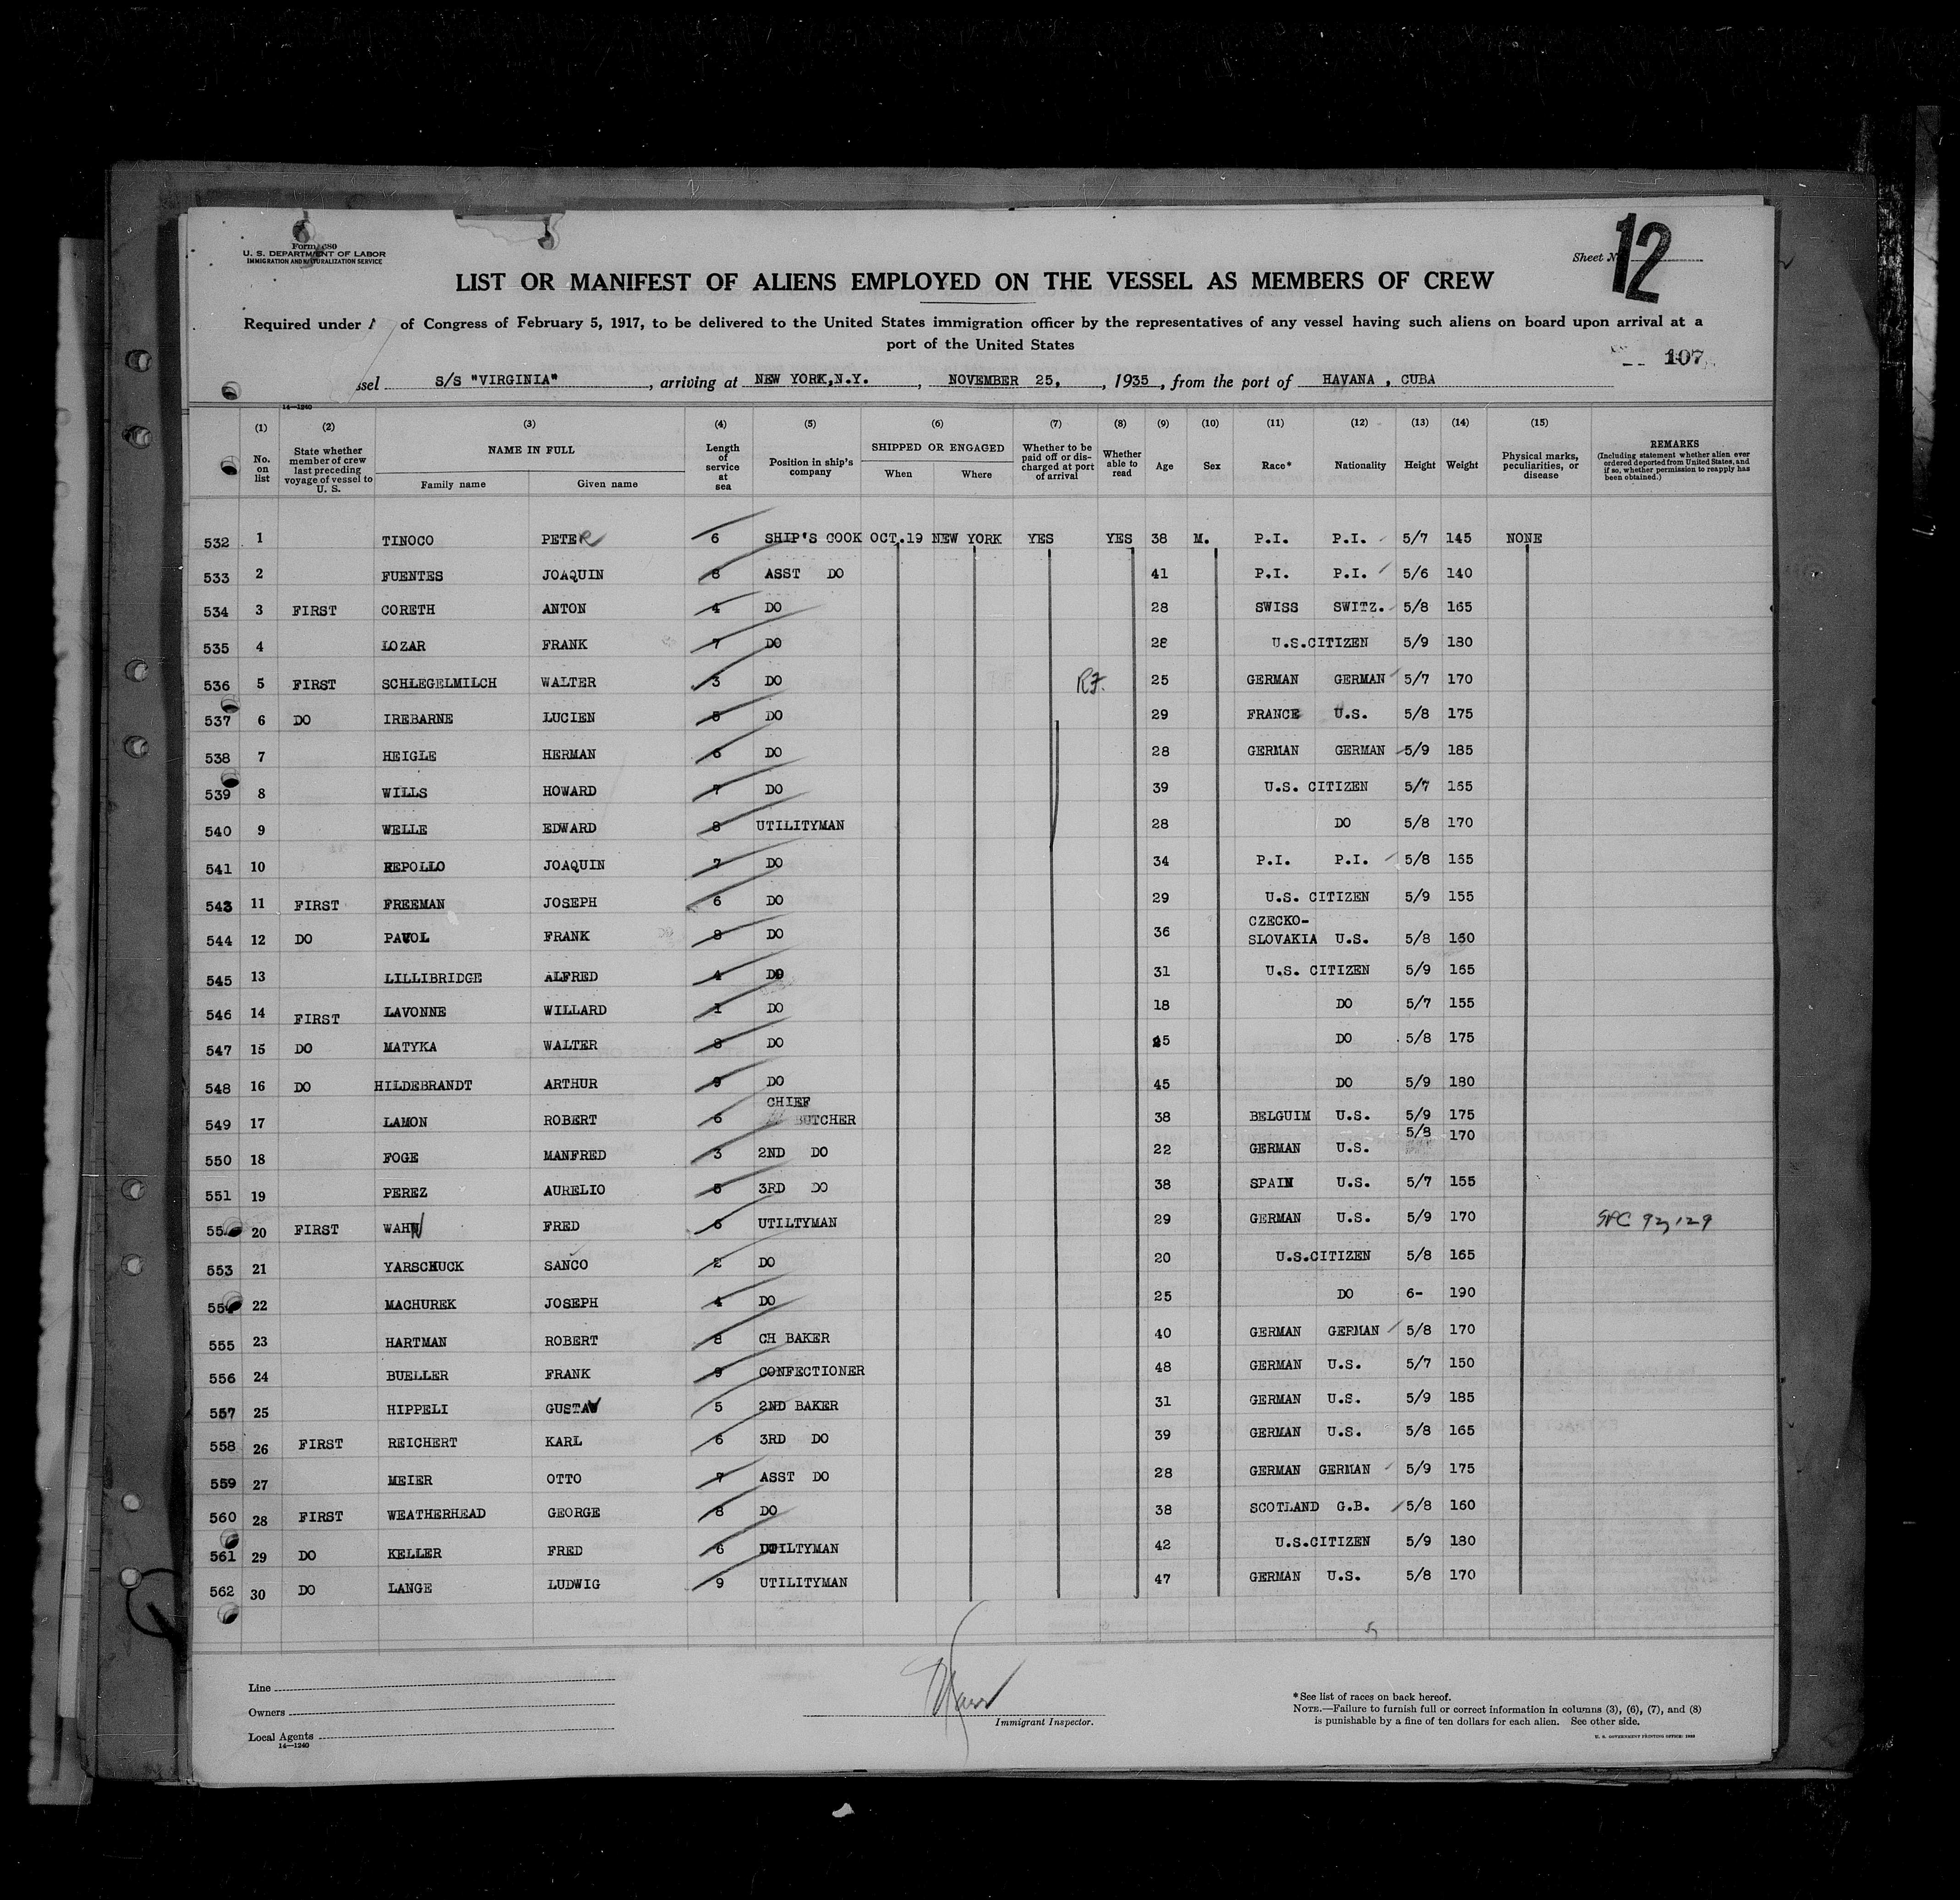 Form 680
U. S. DEPARTMENT OF LABOR
IMMIGRATION AND NATURALIZATION SERVICE
Sheet N
12
LIST OR MANIFEST OF ALIENS EMPLOYED ON THE VESSEL AS MEMBERS OF CREW
Required under A of Congress of February 5, 1917, to be delivered to the United States immigration officer by the representatives of any vessel having such aliens on board upon arrival at a
port of the United States
107
ssel S/S "VIRGINIA" , arriving at NEW YORK,N.Y. , NOVEMBER 25, , 1935 , from the port of HAVANA , CUBA
14—1240
(1) No. on list
(2) State whether member of crew last preceding voyage of vessel to U. S.
(3) NAME IN FULL Family name Given name
(4) Length of service at sea
(5) Position in ship's company
(6) SHIPPED OR ENGAGED When Where
(7) Whether to be paid off or discharged at port of arrival
(8) Whether able to read
(9) Age
(10) Sex
(11) Race*
(12) Nationality
(13) Height
(14) Weight
(15) Physical marks, peculiarities, or disease
REMARKS (Including statement whether alien ever ordered deported from United States, and if so, whether permission to reapply has been obtained.)
532 1 TINOCO PETER 6 SHIP'S COOK OCT.19 NEW YORK YES YES 38 M. P.I. P.I. 5/7 145 NONE
533 2 FUENTES JOAQUIN 8 ASST DO 41 P.I. P.I. 5/6 140
534 3 FIRST CORETH ANTON 4 DO 28 SWISS SWITZ. 5/8 165
535 4 LOZAR FRANK 7 DO 28 U.S.CITIZEN 5/9 180
536 5 FIRST SCHLEGELMILCH WALTER 3 DO 25 GERMAN GERMAN 5/7 170
537 6 DO IREBARNE LUCIEN 5 DO 29 FRANCE U.S. 5/8 175
538 7 HEIGLE HERMAN 6 DO 28 GERMAN GERMAN 5/9 185
539 8 WILLS HOWARD 7 DO 39 U.S. CITIZEN 5/7 155
540 9 WELLE EDWARD 8 UTILITYMAN 28 DO 5/8 170
541 10 REPOLLO JOAQUIN 7 DO 34 P.I. P.I. 5/8 155
543 11 FIRST FREEMAN JOSEPH 6 DO 29 U.S. CITIZEN 5/9 155
544 12 DO PAVOL FRANK 8 DO 36 CZECKO-SLOVAKIA U.S. 5/8 160
545 13 LILLIBRIDGE ALFRED 4 DO 31 U.S. CITIZEN 5/9 165
546 14 FIRST LAVONNE WILLARD 1 DO 18 DO 5/7 155
547 15 DO MATYKA WALTER 8 DO 25 DO 5/8 175
548 16 DO HILDEBRANDT ARTHUR 9 DO 45 DO 5/9 180
549 17 LAMON ROBERT 6 CHIEF BUTCHER 38 BELGUIM U.S. 5/9 175
550 18 FOGE MANFRED 3 2ND DO 22 GERMAN U.S. 5/8 170
551 19 PEREZ AURELIO 5 3RD DO 38 SPAIN U.S. 5/7 155
55 20 FIRST WAHN FRED 6 UTILTYMAN 29 GERMAN U.S. 5/9 170
553 21 YARSCHUCK SANCO 2 DO 20 U.S.CITIZEN 5/8 165
554 22 MACHUREK JOSEPH 4 DO 25 DO 6- 190
555 23 HARTMAN ROBERT 8 CH BAKER 40 GERMAN GERMAN 5/8 170
556 24 BUELLER FRANK 9 CONFECTIONER 48 GERMAN U.S. 5/7 150
557 25 HIPPELI GUSTAV 5 2ND BAKER 31 GERMAN U.S. 5/9 185
558 26 FIRST REICHERT KARL 6 3RD DO 39 GERMAN U.S. 5/8 165
559 27 MEIER OTTO 7 ASST DO 28 GERMAN GERMAN 5/9 175
560 28 FIRST WEATHERHEAD GEORGE 8 DO 38 SCOTLAND G.B. 5/8 160
561 29 DO KELLER FRED 6 UTILTYMAN 42 U.S.CITIZEN 5/9 180
562 30 DO LANGE LUDWIG 9 UTILITYMAN 47 GERMAN U.S. 5/8 170
Line
Owners
Local Agents
14—1240
Immigrant Inspector.
*See list of races on back hereof.
NOTE.—Failure to furnish full or correct information in columns (3), (6), (7), and (8)
is punishable by a fine of ten dollars for each alien. See other side.